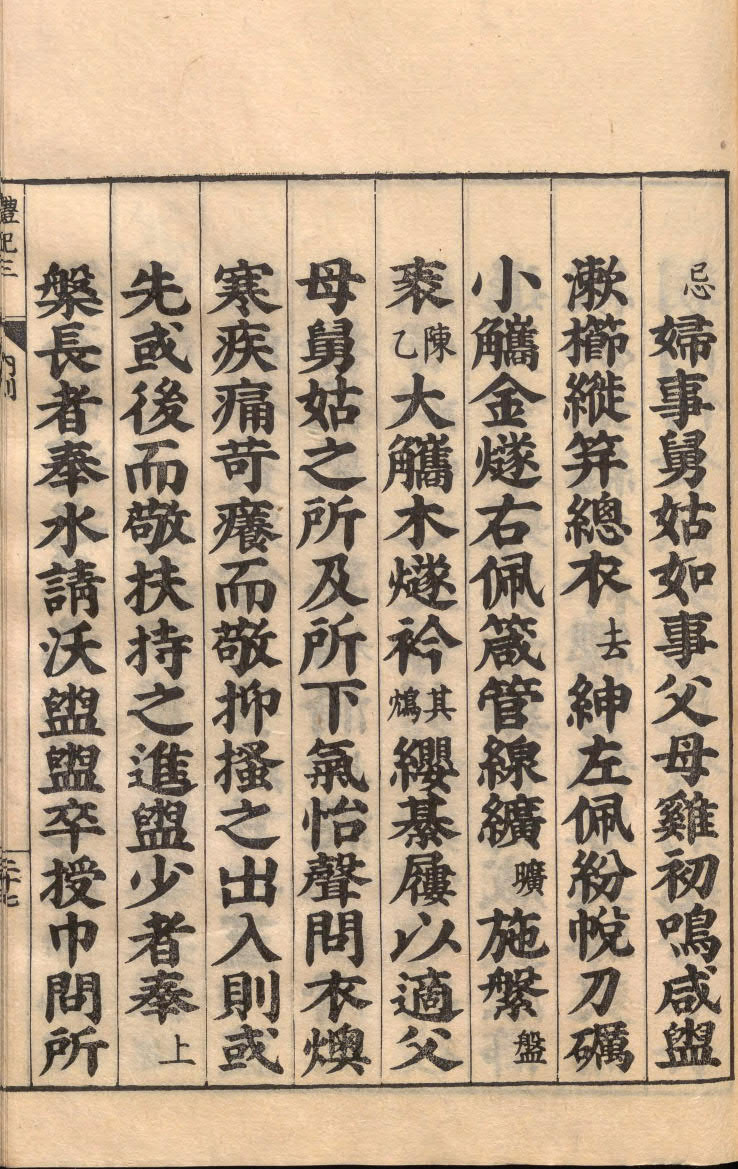 忌婦事舅姑如事父母雞初鳴咸盥
漱櫛縰笄總衣去紳左佩紛帨刀礪
小觿金燧右佩箴管線纊曠施縏盤
袠陳乙大觿木燧衿其鴆纓綦屨以適父
母舅姑之所及所下氣怡聲問衣燠
寒疾痛苛癢而敬抑搔之出入則或
先或後而敬扶持之進盥少者奉上
槃長者奉水請沃盥盥卒授巾問所
禮記三 內則